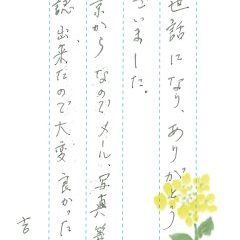 世話になり、ありがとう
ざいました。
京からなのでメール、写真等
認出来たので大変良かった
吉